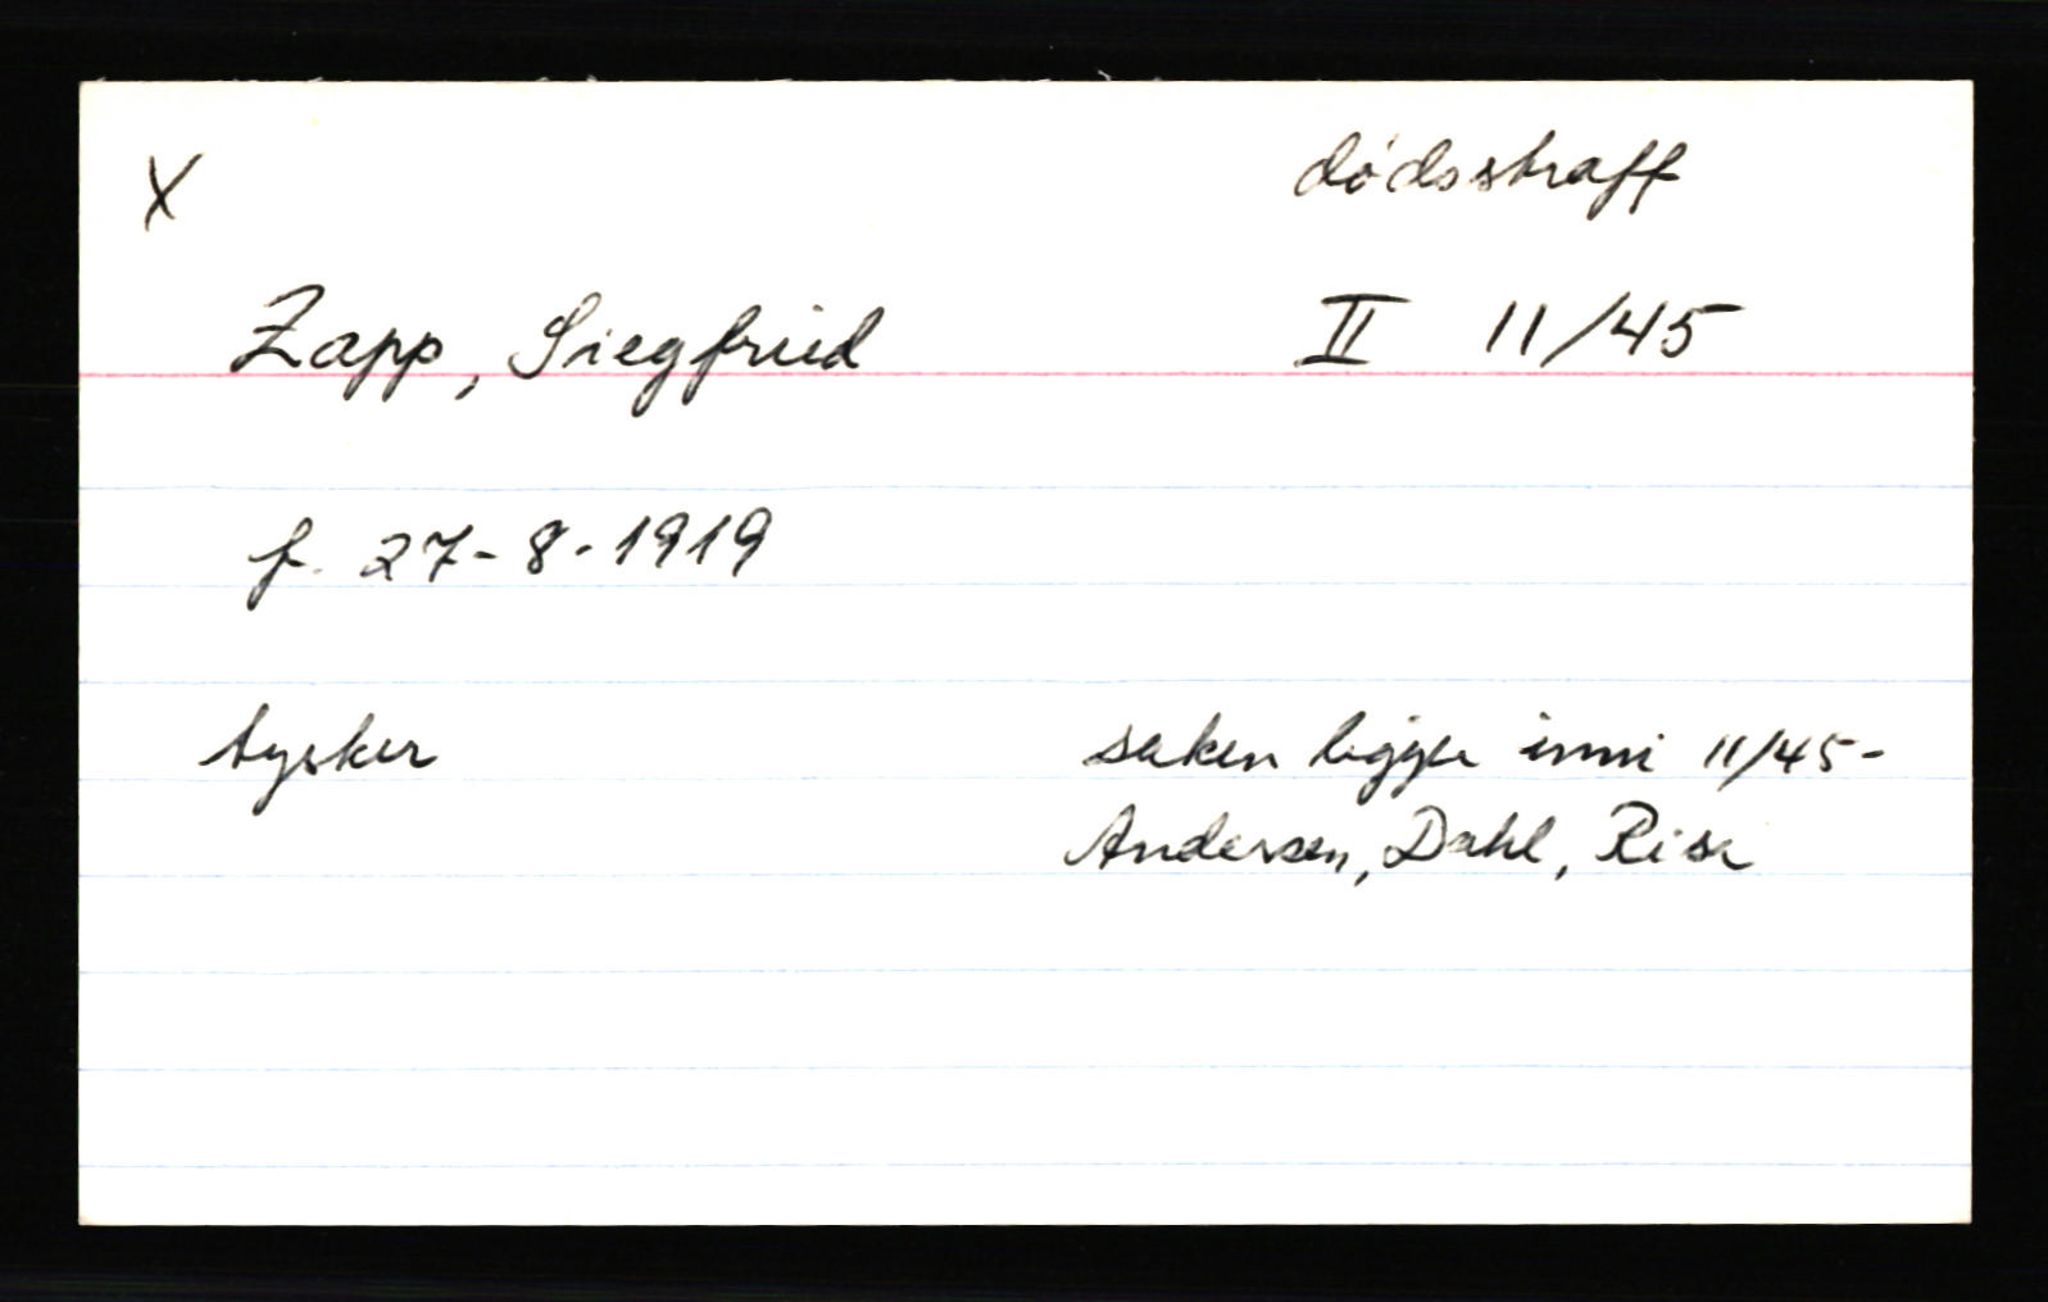 X
dødsstraff
Zapp, Siegfried II 11/45
f. 27-8-1919
tysker
saken ligger inni 11/45-
Andersen, Dahl, Risa